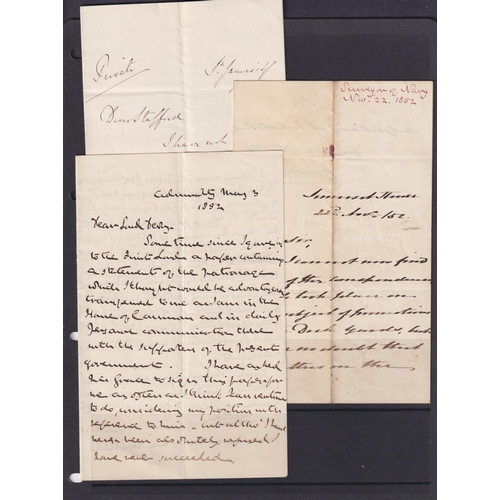 Private
St. James's
Dear Stafford
I have
Surveyor of Navy
Nov. 22. 1852
Somerset House
22d Nov /52
Sir,
I cannot now find
of the correspondence
took plan on
subject of Promotions
Dock Yards, but
no doubt that
this on the
Admiralty May 3
1852
Dear Lord Derby.
Some time since I gave in
to the First Lord a paper containing
a statement of the patronage
which I thought would be advantageously
transferred to me as I am in the
House of Commons and in daily
personal communication there
with the supporters of the present
government. I have asked
his Grace to sign this paper for
me as often as I think I can venture
to do, considering my position with
reference to him - but altho' I have
never been absolutely refused I
have never succeeded